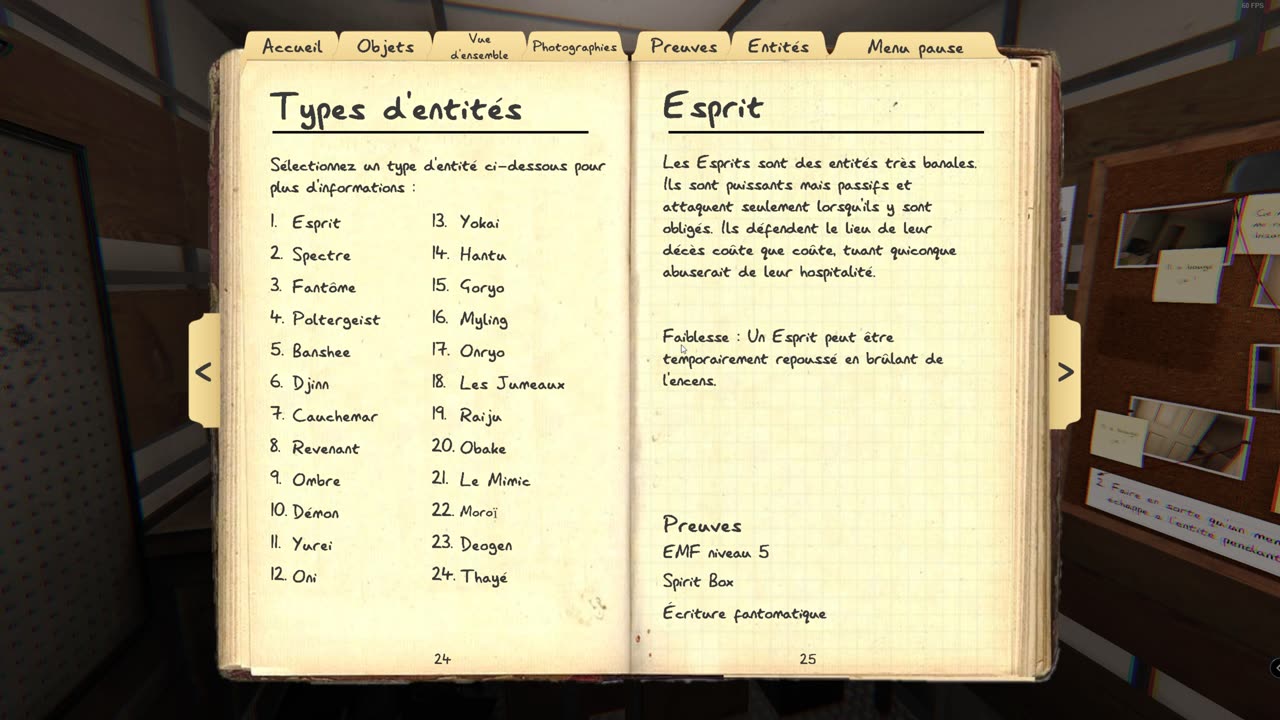 60 FPS
Accueil
Objets
Vue
d'ensemble
Photographies
Preuves
Entités
Menu pause
Types d'entités
Sélectionnez un type d'entité ci-dessous pour
plus d'informations :
1. Esprit
2. Spectre
3. Fantôme
4. Poltergeist
5. Banshee
6. Djinn
7. Cauchemar
8. Revenant
9. Ombre
10. Démon
11. Yurei
12. Oni
13. Yokai
14. Hantu
15. Goryo
16. Myling
17. Onryo
18. Les Jumeaux
19. Raiju
20. Obake
21. Le Mimic
22. Moroï
23. Deogen
24. Thayé
24
<
Esprit
Les Esprits sont des entités très banales.
Ils sont puissants mais passifs et
attaquent seulement lorsqu'ils y sont
obligés. Ils défendent le lieu de leur
décès coûte que coûte, tuant quiconque
abuserait de leur hospitalité.
Faiblesse : Un Esprit peut être
temporairement repoussé en brûlant de
l'encens.
Preuves
EMF niveau 5
Spirit Box
Écriture fantomatique
25
>
2. Faire en sorte qu'un
échappe à l'entité pendant